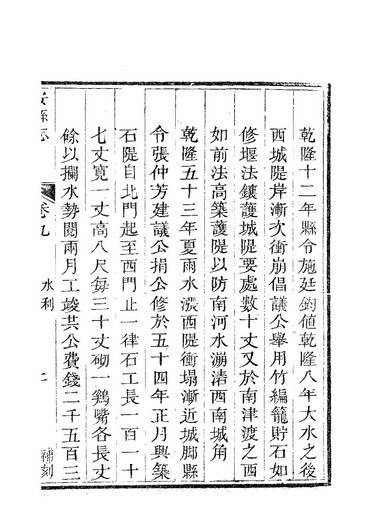 乾隆十二年縣令施廷鈞值乾隆八年大水之後
西城隄岸漸次衝崩倡議公舉用竹編籠貯石如
修堰法鑲護城隄要處數十丈又於南津渡之西
如前法高築護隄以防南河水溯洁西南城角
乾隆五十三年夏雨水漲西隄衝塌漸近城脚縣
令張仲芳建議公捐公修於五十四年正月興築
石隄自北門起至西門止一律石工長一百一十
七丈寬一丈高八尺每三十丈砌一鷄嘴各長丈
餘以攔水勢閱兩月工竣共公費錢二千五百三
縣志
卷九
水利
補刻